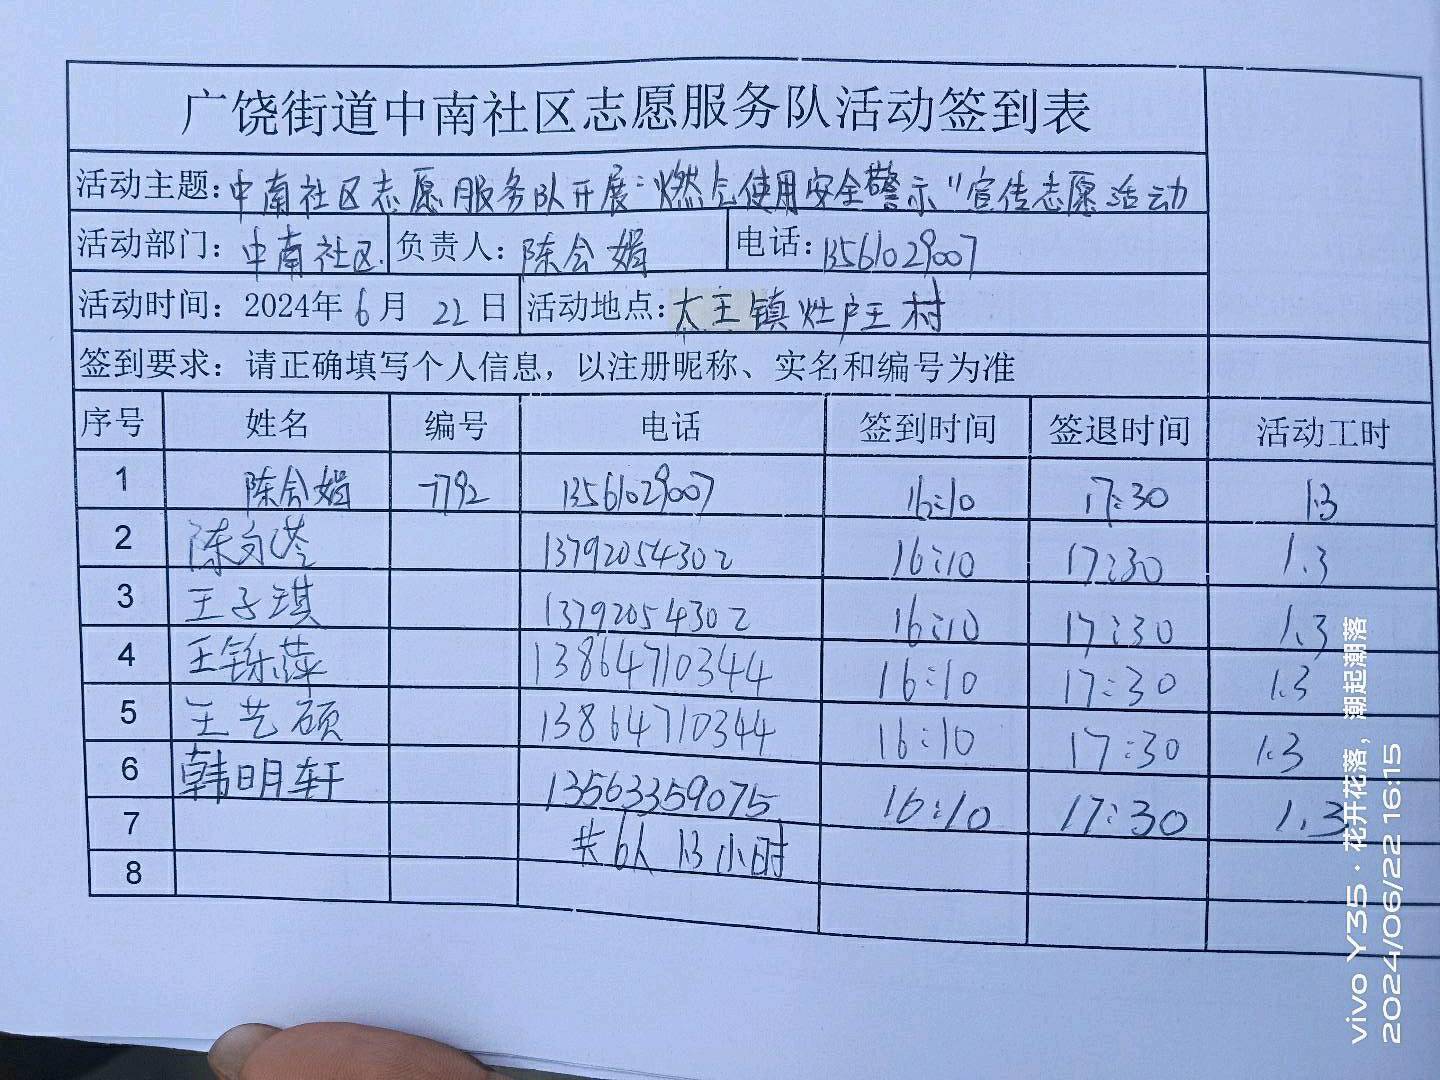 广饶街道中南社区志愿服务队活动签到表
活动主题:中南社区志愿服务队开展"燃气使用安全警示"宣传志愿活动
活动部门:中南社区 负责人:陈会娟 电话:13561029007
活动时间:2024年6月22日 活动地点:大王镇灶户王村
签到要求:请正确填写个人信息,以注册昵称、实名和编号为准
序号 姓名 编号 电话 签到时间 签退时间 活动工时
1 陈会娟 7792 13561029007 16:10 17:30 1.3
2 陈 13792054302 16:10 17:30 1.3
3 王子琪 13792054302 16:10 17:30 1.3
4 王铄萍 13864710344 16:10 17:30 1.3
5 王艺硕 13864710344 16:10 17:30 1.3
6 韩明轩 13563359075 16:10 17:30 1.3
7 共6人 1.3小时
8
vivo Y35 · 花开花落,潮起潮落
2024/06/22 16:15